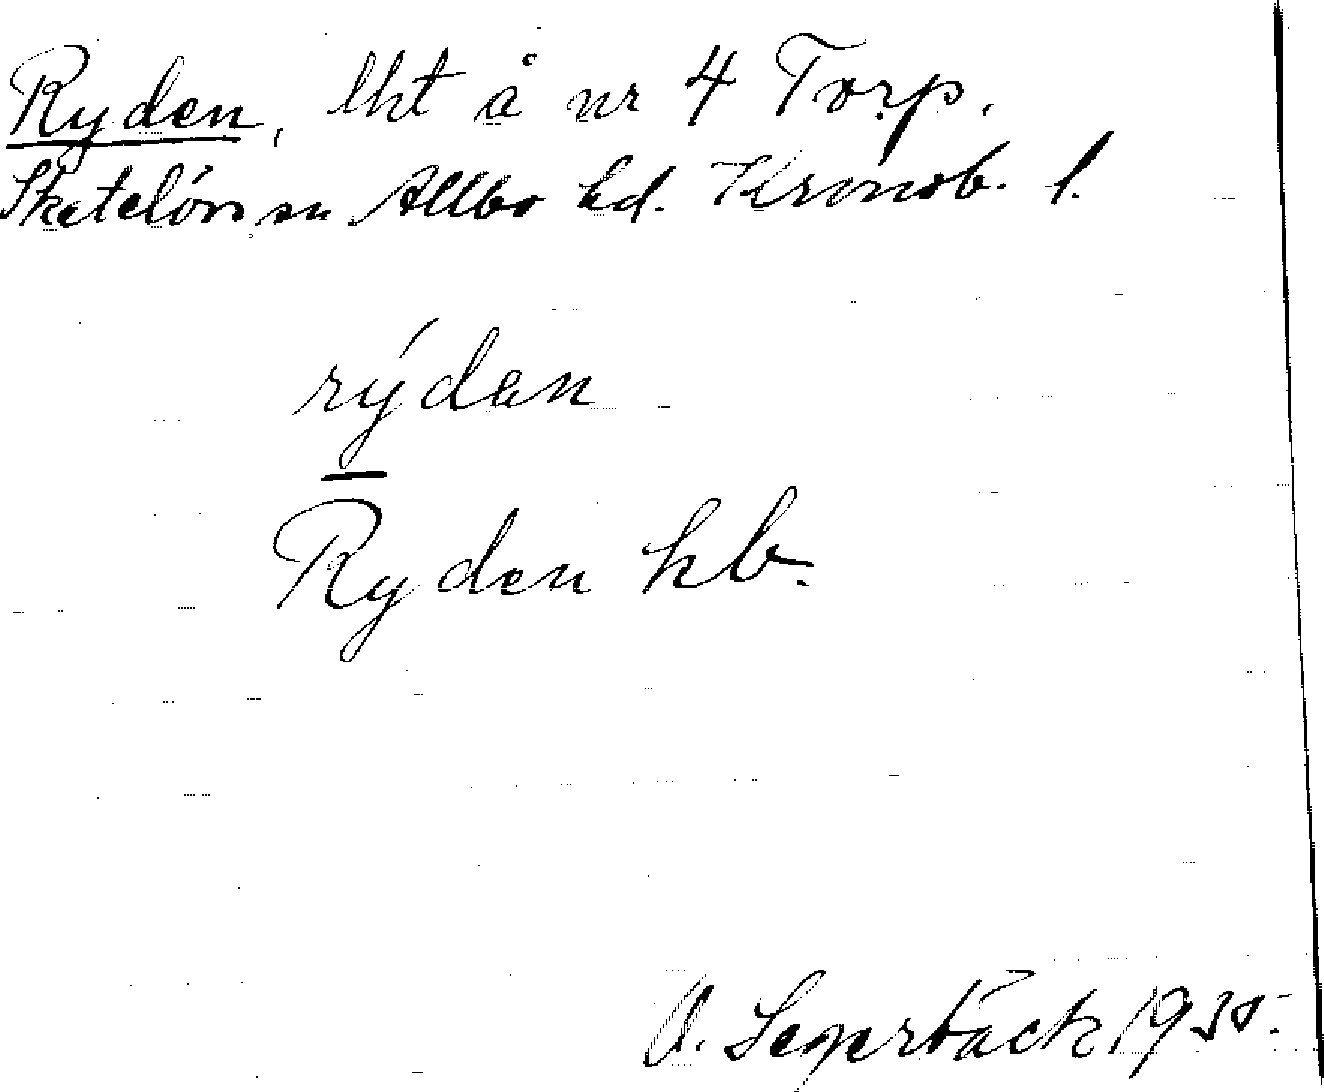 Ryden, lht å nr 4 Torp.
Skatelövs sn Allbo hd. Kronob. l.
rýdan
Ryden kb.
A. Segerbäck 1930.